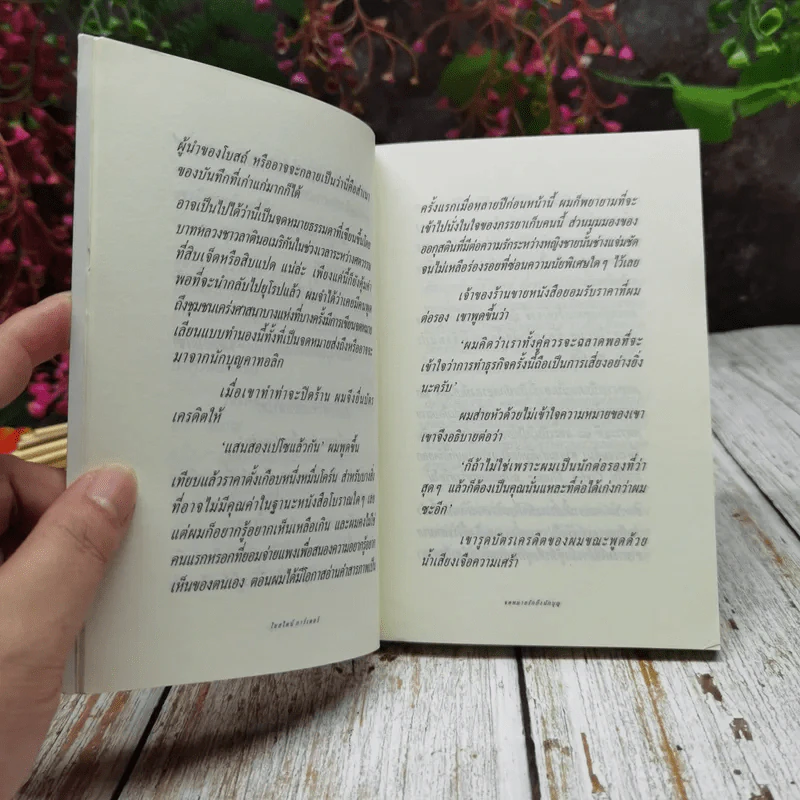 ผู้นำของโบสถ์ หรืออาจจะกลายเป็นว่านี่คือสำเนา
ของบันทึกที่เก่าแก่มากก็ได้
อาจเป็นไปได้ว่านี่เป็นจดหมายธรรมดาที่เขียนขึ้นโดย
บาทหลวงชาวลาตินอเมริกันในช่วงเวลาระหว่างศตวรรษ
ที่สิบเจ็ดหรือสิบแปด แน่ล่ะ เพียงแค่นี้ก็ยังคุ้มค่า
พอที่จะนำกลับไปยุโรปแล้ว ผมจำได้ว่าเคยมีคนพูด
ถึงชุมชนเคร่งศาสนาบางแห่งที่บางครั้งมีการเขียนจดหมาย
เลียนแบบทำนองนี้ทั้งที่เป็นจดหมายส่งถึงหรืออาจจะ
มาจากนักบุญคาทอลิก
เมื่อเขาทำท่าจะปิดร้าน ผมจึงยื่นบัตร
เครดิตให้
‘แสนสองเปโซแล้วกัน’ ผมพูดขึ้น
เทียบแล้วราคาตั้งเกือบหนึ่งหมื่นโครน สำหรับบางสิ่ง
ที่อาจไม่มีคุณค่าในฐานะหนังสือโบราณใดๆ เลย
แต่ผมก็อยากรู้อยากเห็นเหลือเกิน และผมคงไม่ใช่
คนแรกหรอกที่ยอมจ่ายแพงเพื่อสนองความอยากรู้อยาก
เห็นของตนเอง ตอนผมได้มีโอกาสอ่านคำสารภาพเป็น
โยสไตน์ กอร์เดอร์
ครั้งแรกเมื่อหลายปีก่อนหน้านี้ ผมก็พยายามที่จะ
เข้าไปนั่งในใจของภรรยาเก็บคนนี้ ส่วนมุมมองของ
ออกัสตินที่มีต่อความรักระหว่างหญิงชายนั้นช่างแจ่มชัด
จนไม่เหลือร่องรอยที่ซ่อนความนัยพิเศษใดๆ ไว้เลย
เจ้าของร้านขายหนังสือยอมรับราคาที่ผม
ต่อรอง เขาพูดขึ้นว่า
‘ผมคิดว่าเราทั้งคู่ควรจะฉลาดพอที่จะ
เข้าใจว่าการทำธุรกิจครั้งนี้ถือเป็นการเสี่ยงอย่างยิ่ง
นะครับ’
ผมส่ายหัวด้วยไม่เข้าใจความหมายของเขา
เขาจึงอธิบายต่อว่า
‘ก็ถ้าไม่ใช่เพราะผมเป็นนักต่อรองที่ว่า
สุดๆ แล้วก็ต้องเป็นคุณนั่นแหละที่ต่อได้เก่งกว่าผม
ซะอีก’
เขารูดบัตรเครดิตของผมขณะพูดด้วย
น้ำเสียงเจือความเศร้า
จดหมายรักถึงนักบุญ